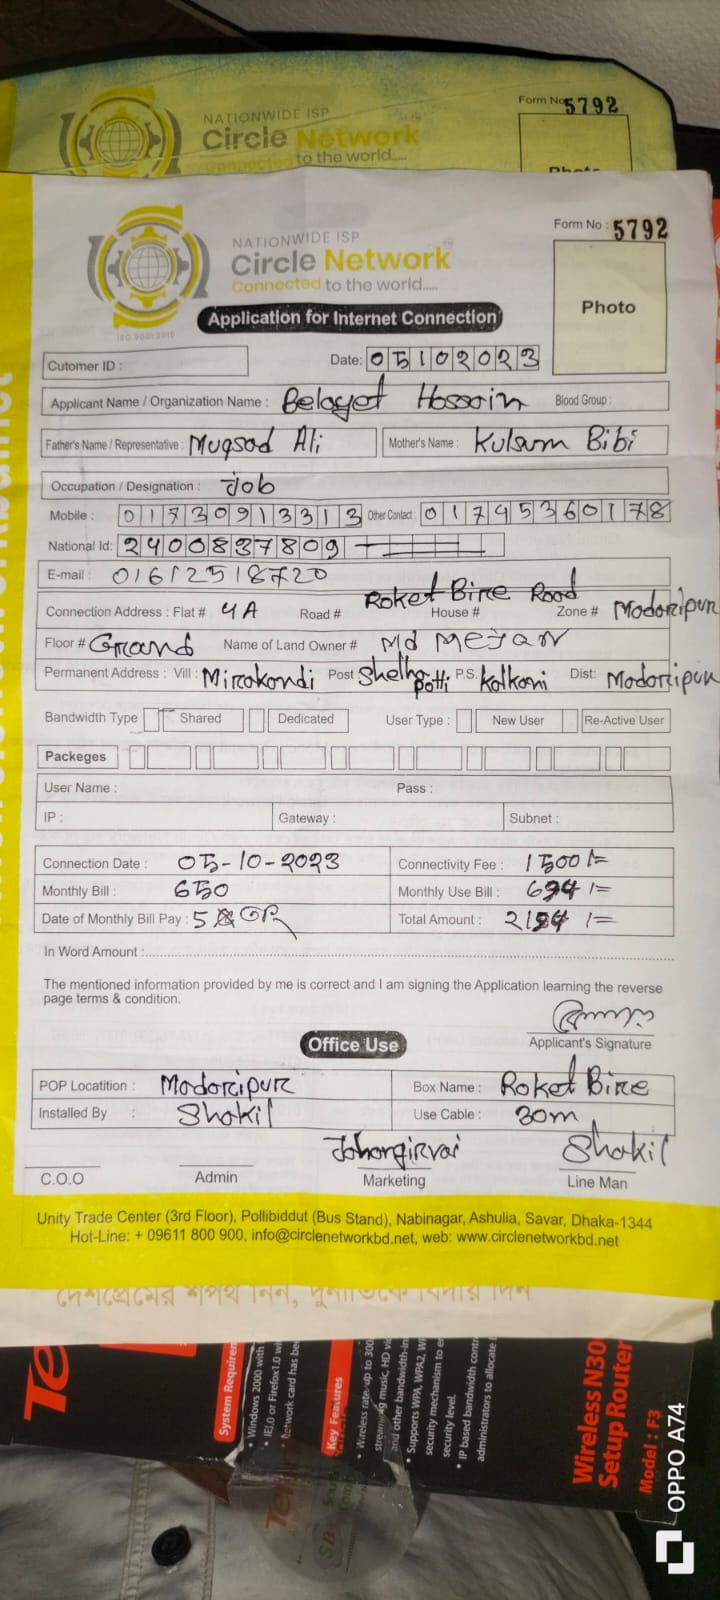 Form No 5792
NATIONWIDE ISP
Circle Network
Connected to the world....
Photo
Form No : 5792
NATIONWIDE ISP
Circle Network
Connected to the world.....
ISO 9001:2015
Photo
Application for Internet Connection
Cutomer ID : Date: 05102023
Applicant Name / Organization Name : Belayet Hossain Blood Group :
Father's Name / Representative : Muqsad Ali Mother's Name : Kulsum Bibi
Occupation / Designation : Job
Mobile : 01730913313 Other Contact : 01745360178
National Id: 2400837809
E-mail : 01612518720
Connection Address : Flat # 4A Road # Roket Bire Road House # Zone # Madaripur
Floor # Grand Name of Land Owner # Md Mejan
Permanent Address : Vill : Mirakandi Post P.S. Kalkani Dist: Madaripur
Bandwidth Type Shared Dedicated User Type : New User Re-Active User
Packeges
User Name : Pass :
IP : Gateway : Subnet :
Connection Date : 05-10-2023 Connectivity Fee : 1500/=
Monthly Bill : 650 Monthly Use Bill : 694/=
Date of Monthly Bill Pay : 5 Total Amount : 2194/=
In Word Amount :
The mentioned information provided by me is correct and I am signing the Application learning the reverse
page terms & condition.
Applicant's Signature
Office Use
POP Locatition : Madaripur Box Name : Roket Bire
Installed By : Shakil Use Cable : 30m
Jahangirvai Shakil
C.O.O Admin Marketing Line Man
Unity Trade Center (3rd Floor), Pollibiddut (Bus Stand), Nabinagar, Ashulia, Savar, Dhaka-1344
Hot-Line: + 09611 800 900, info@circlenetworkbd.net, web: www.circlenetworkbd.net
দেশপ্রেমের শপথ নিন, দুর্নীতিকে বিদায় দিন
System Requirem
Windows 2000 with
IE1.0 or Firefox1.0 w
Network card has bee
Key Features
Wireless rate up to 300
streaming music, HD vi
and other bandwidth-in
Supports WPA, WPA2, W
security mechanism to e
security level.
IP based bandwidth contr
administrators to allocate
Wireless N30
Setup Router
Model : F3
OPPO A74